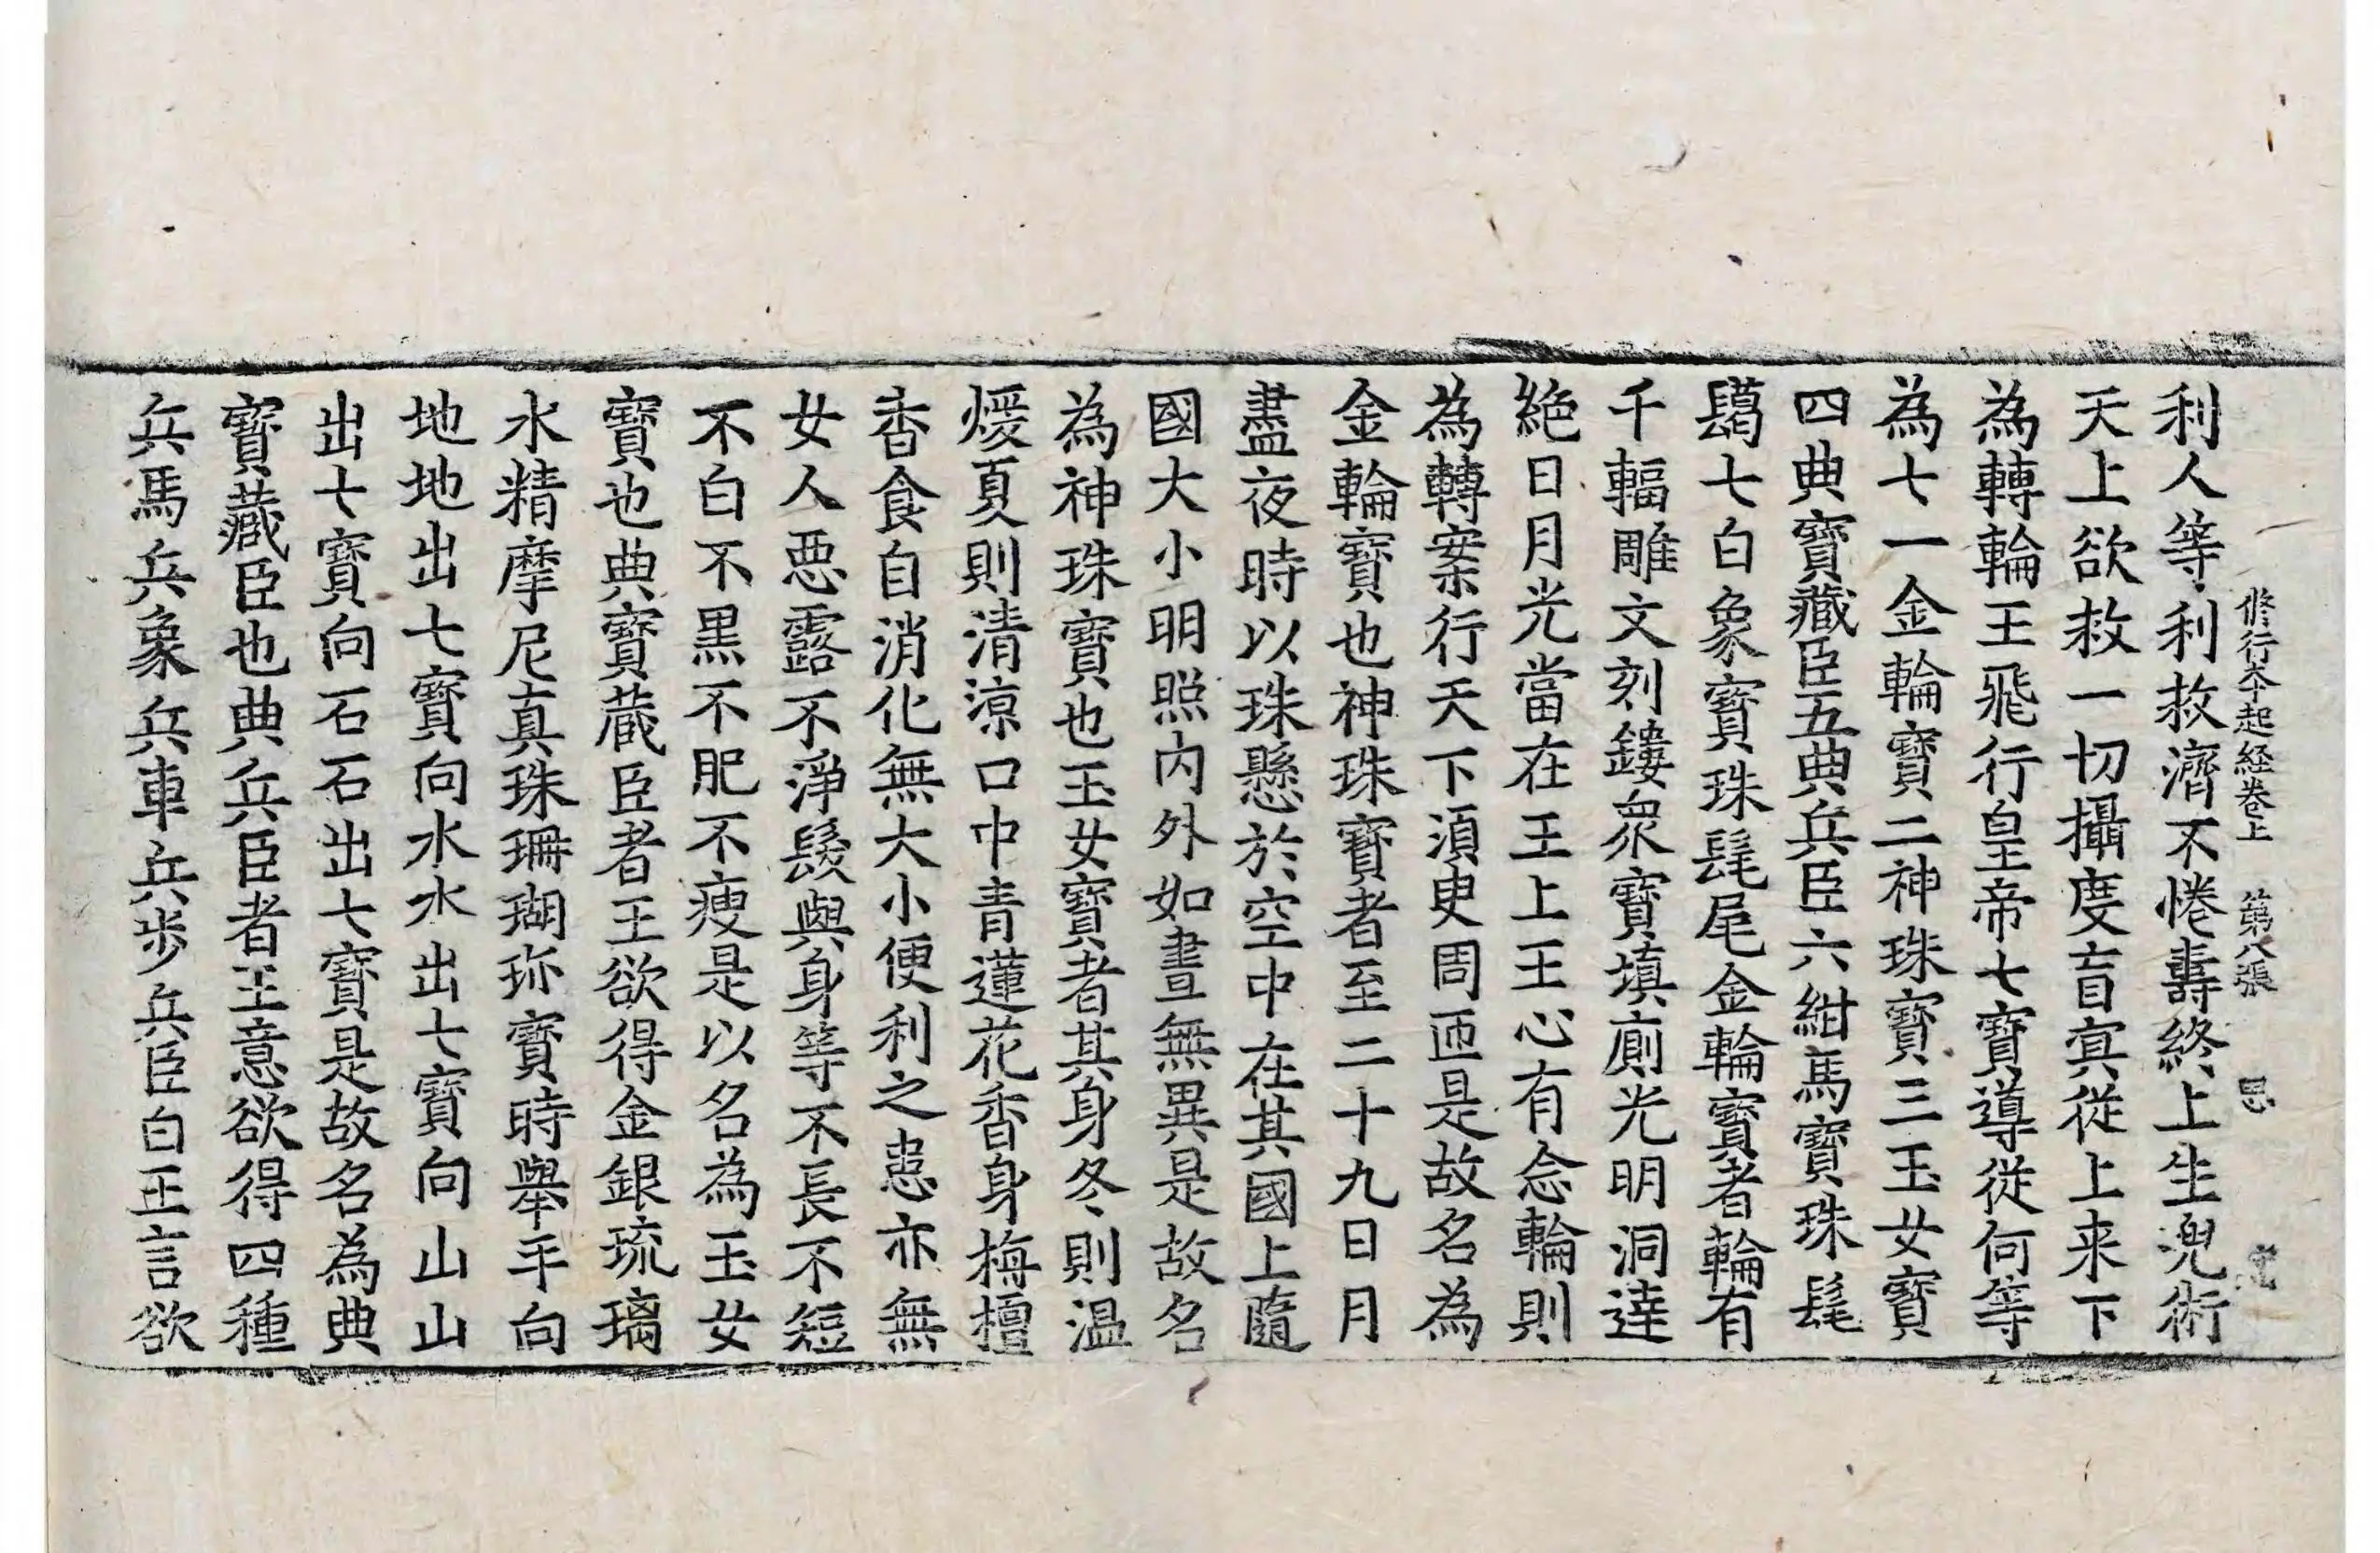 修行本起経卷上　第八張　思
利人等利救濟不惓壽終上生兜術
天上欲救一切攝度盲冥從上来下
為轉輪王飛行皇帝七寶導從何等
為七一金輪寶二神珠寶三玉女寶
四典寶藏臣五典兵臣六紺馬寶珠髦
𩮀七白象寶珠髦尾金輪寶者輪有
千輻雕文刻鏤眾寶填廁光明洞達
絶日月光當在王上王心有念輪則
為轉案行天下湏臾周匝是故名為
金輪寶也神珠寶者至二十九日月
盡夜時以珠懸於空中在其國上隨
國大小明照内外如晝無異是故名
為神珠寶也玉女寶者其身冬則温
煖夏則清涼口中青蓮花香身栴檀
香食自消化無大小便利之患亦無
女人惡露不淨髮與身等不長不短
不白不黒不肥不瘦是以名為玉女
寶也典寶蔵臣者王欲得金銀琉璃
水精摩尼真珠珊瑚珎寶時舉手向
地地出七寶向水水出七寶向山山
出七寶向石石出七寶是故名為典
寶藏臣也典兵臣者王意欲得四種
兵馬兵象兵車兵歩兵臣白王言欲